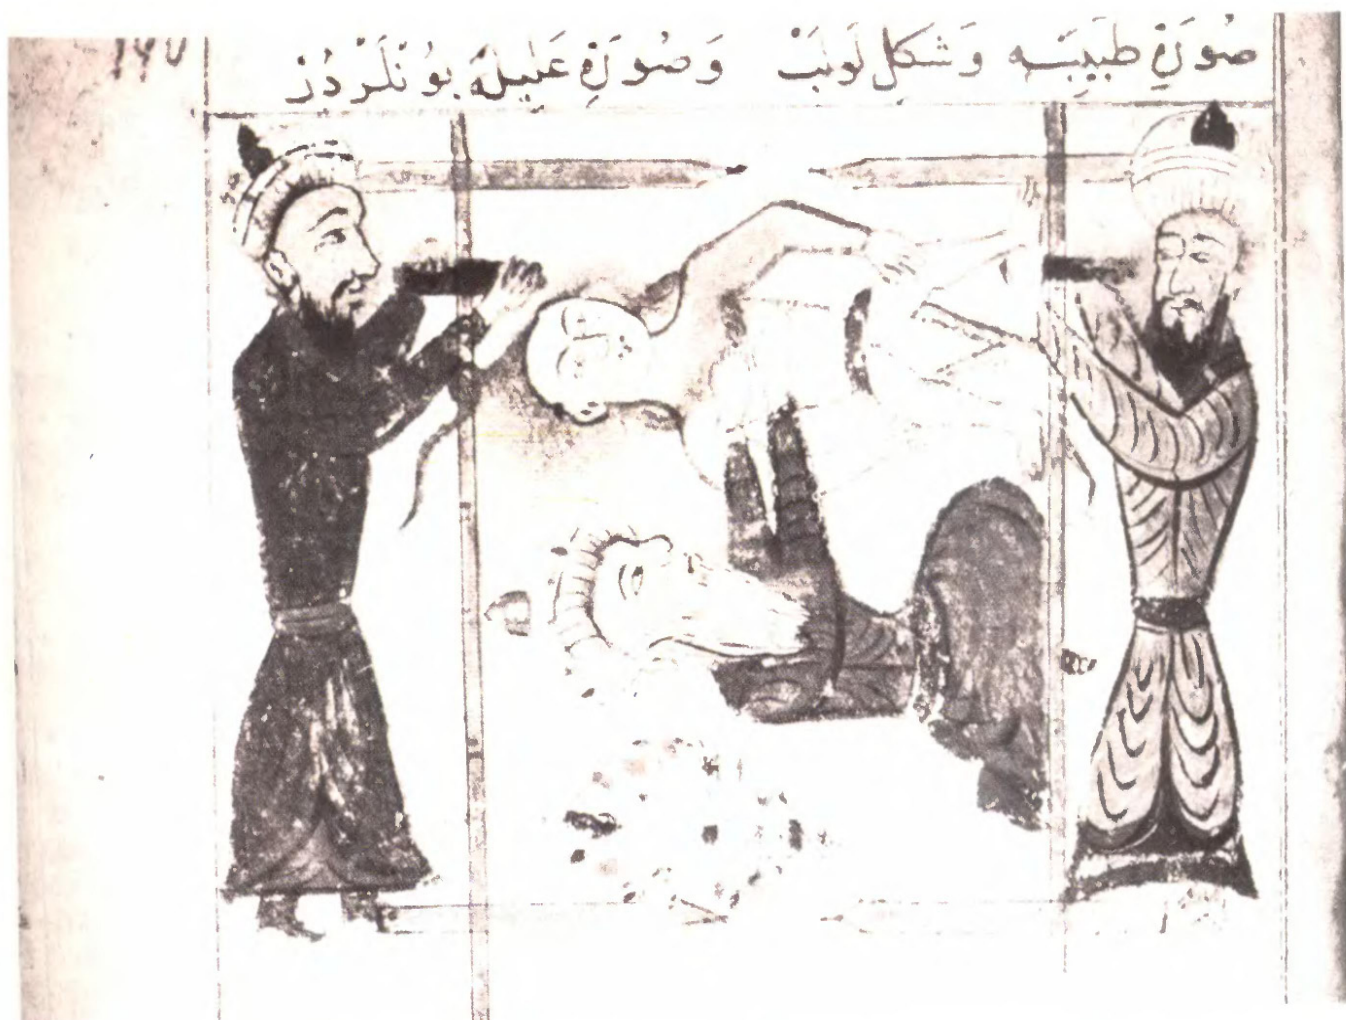 صُورَةِ طَبِيبَه وَشَكلِ لَولَبْ وَصُورَةِ عَلِيلَه بُونْلَرْدُرْ